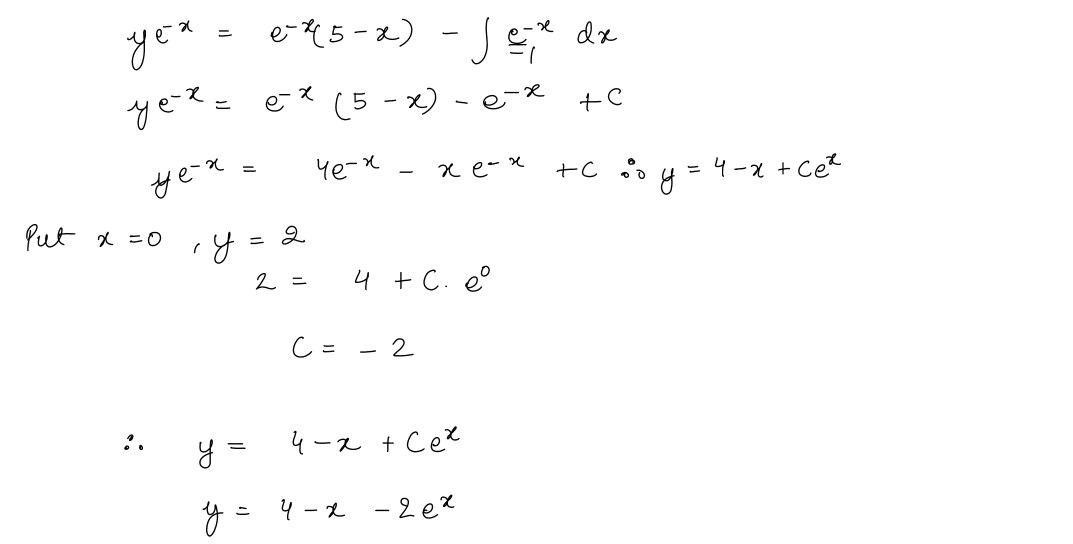 y e⁻ˣ = e⁻ˣ(5 - x) - ∫ e⁻ˣ/-1 dx
y e⁻ˣ = e⁻ˣ (5 - x) - e⁻ˣ + C
y e⁻ˣ = 4e⁻ˣ - x e⁻ˣ + C ∴ y = 4 - x + Ceˣ
Put x = 0 , y = 2
2 = 4 + C. e⁰
C = - 2
∴ y = 4 - x + C eˣ
y = 4 - x - 2 eˣ